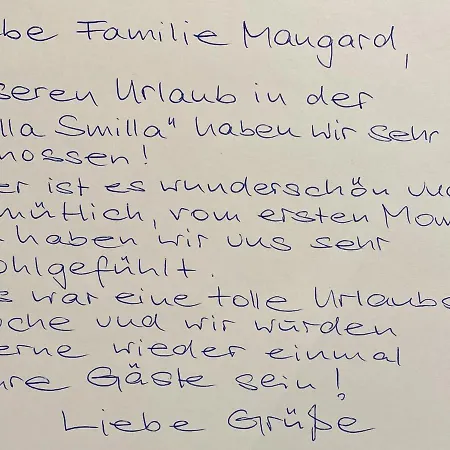 be Familie Maugard,
seren Urlaub in der
lla Smilla" haben wir sehr
nossen!
er ist es wunderschön und
mütlich, vom ersten Mom
haben wir uns sehr
ohlgefühlt.
s war eine tolle Urlaubs
oche und wir würden
erne wieder einmal
hre Gäste sein!
Liebe Grüße